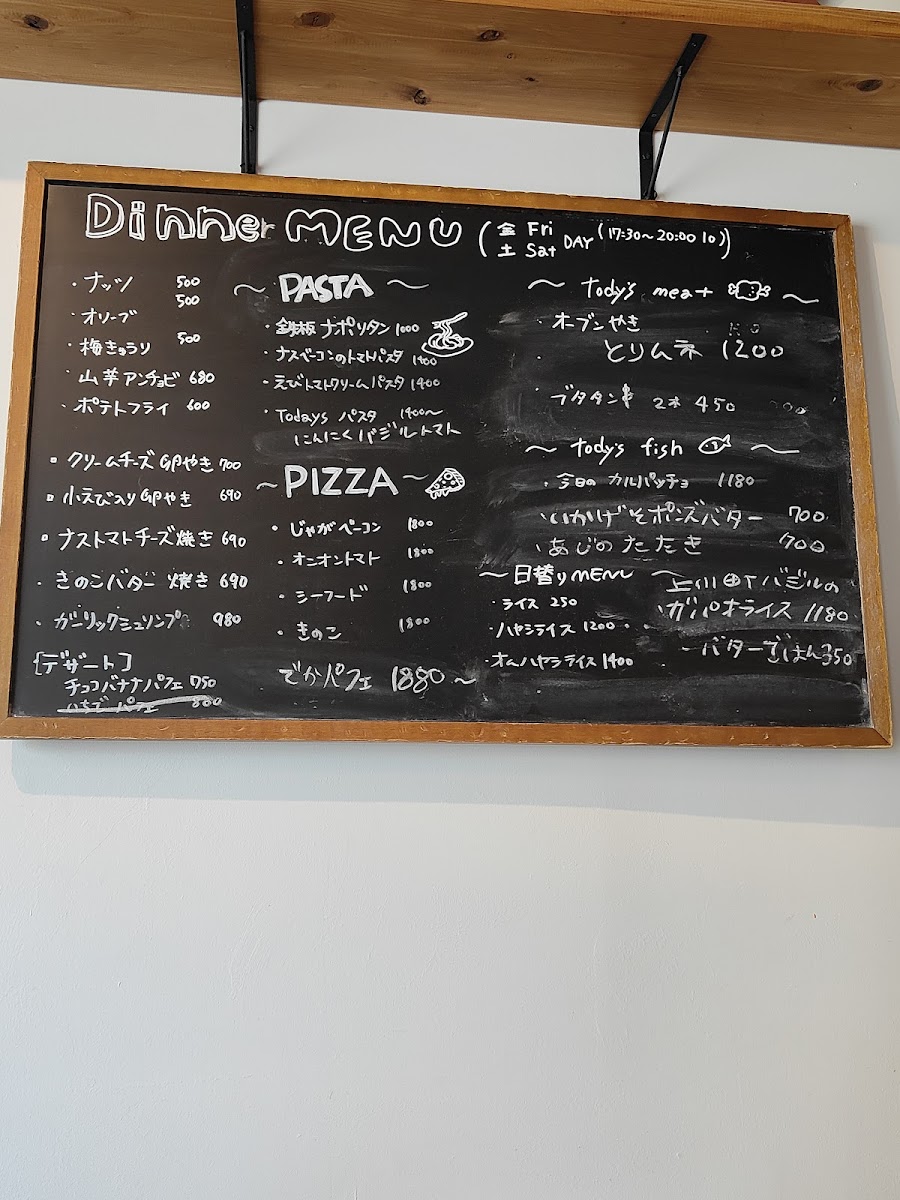 Dinner MENU (金 Fri 土 Sat DAY (17:30~20:00 lo))
・ナッツ 500
・オリーブ 500
・梅きゅうり 500
・山芋アンチョビ 680
・ポテトフライ 600
クリームチーズGPやき 700
小えび入りGPやき 690
ナストマトチーズ焼き 690
・きのこバター焼き 690
・ガーリックシュリンプ 980
[デザート]
チョコバナナパフェ 750
いちごパフェ 800
~PASTA~
・鉄板ナポリタン 1000
・ナスベーコンのトマトパスタ 1400
・えびトマトクリームパスタ 1400
・Todays パスタ 1400~
にんにくバジルトマト
~PIZZA~
・じゃがベーコン 1800
・オニオントマト 1800
・シーフード 1800
・きのこ 1800
でかパフェ 1880~
~ tody's meat ~
・オーブンやき
とりムネ 1200
・ブタタン串 2本 450
~ tody's fish ~
・今日の カルパッチョ 1180
・いかげそポンズバター 700
・あじのたたき 700
~日替りMENU~
・ライス 250
・ハヤシライス 1200
・オムハヤシライス 1400
上川町バジルの
ガパオライス 1180
バターごはん 350